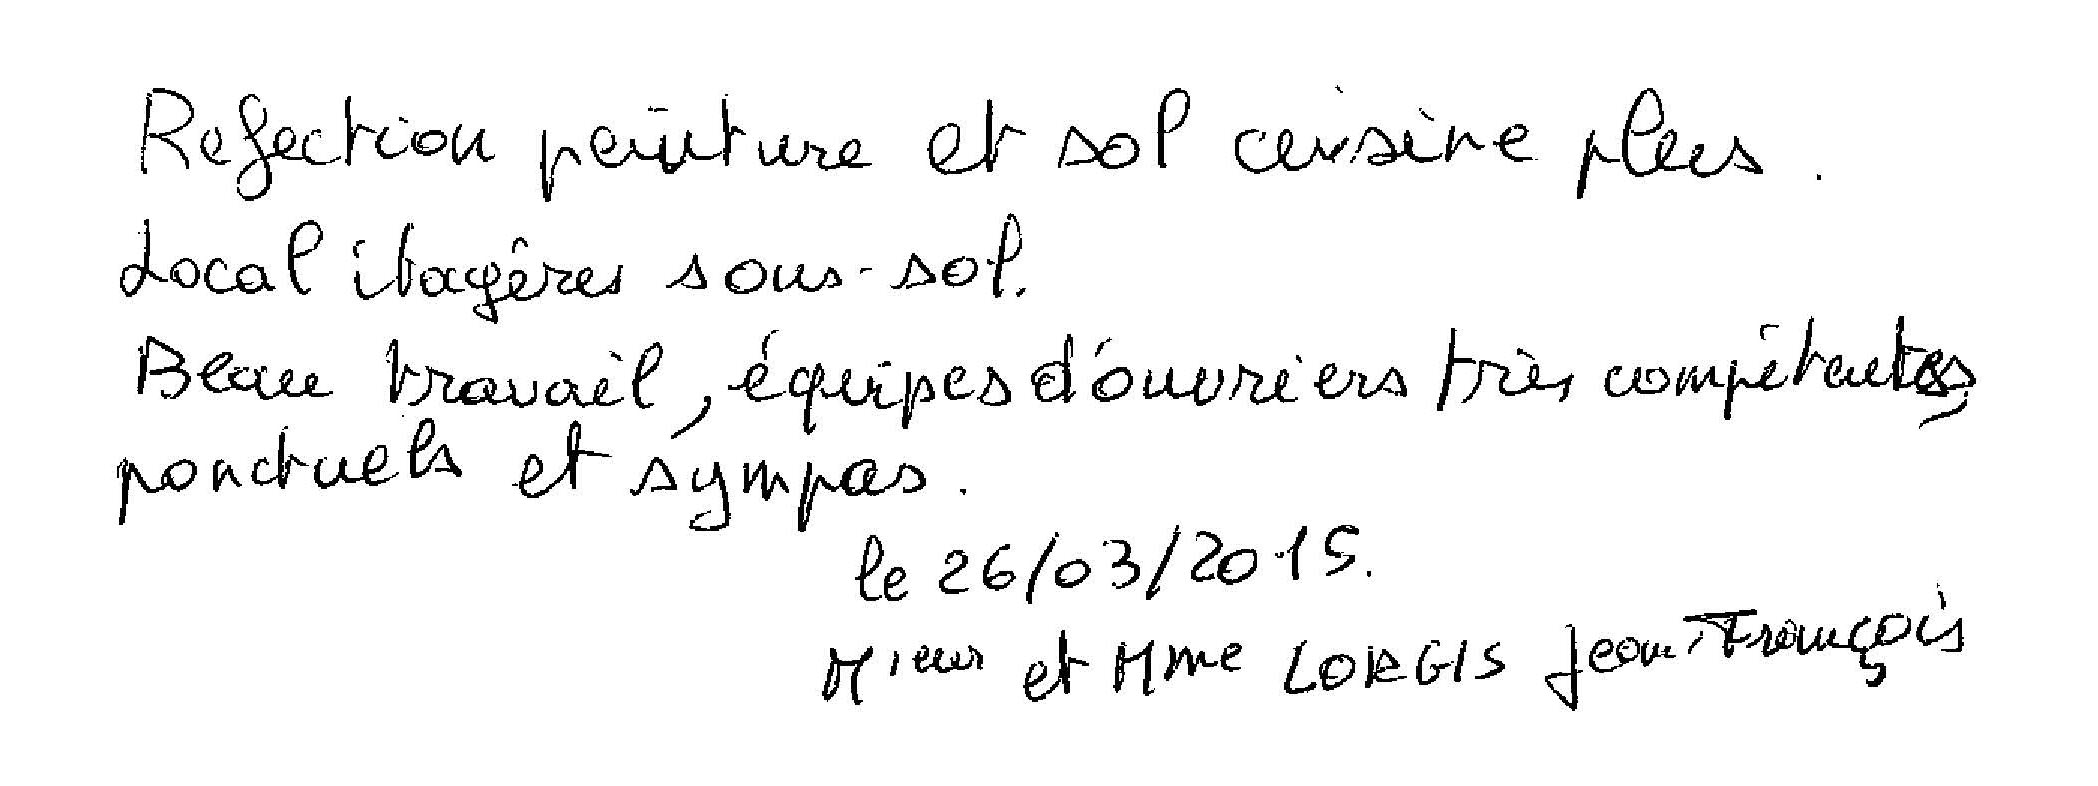 Refection peinture et sol cuisine plus.
Local étagères sous-sol.
Beau travail, équipes d'ouvriers très compétentes,
ponctuels et sympas.
le 26/03/2015.
Mieur et Mme LORGIS Jean-François